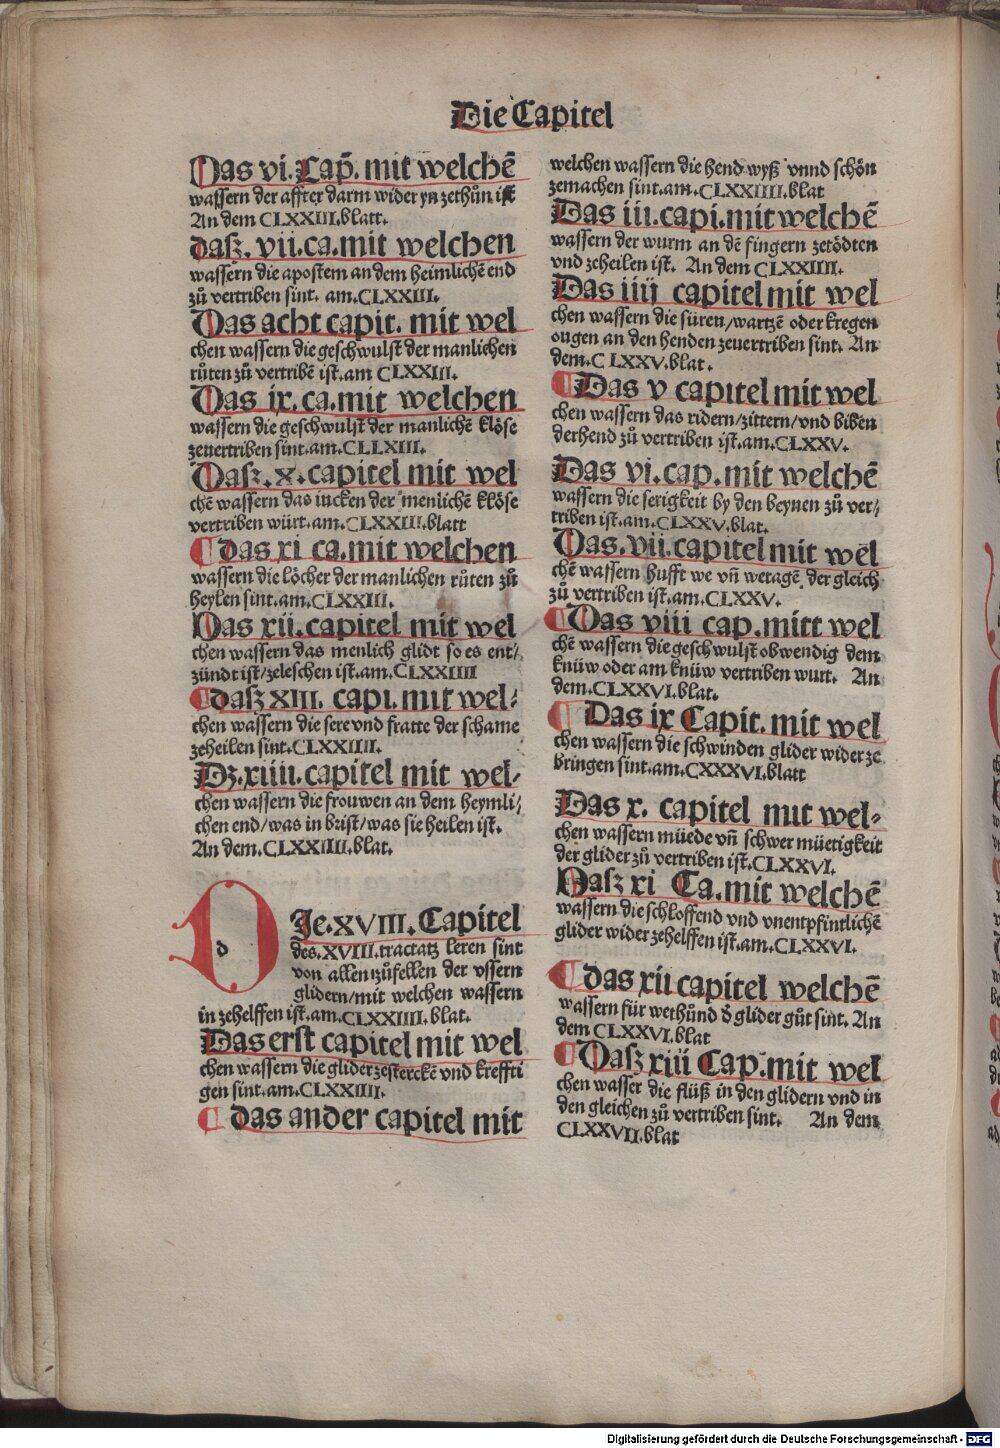 Die Capitel
Das vi. Cap̄. mit welchē
wassern der affter darm wider yn zethůn ist
An dem CLXXIII.blatt.
dasz. vii.ca.mit welchen
wassern die apostem an dem heimlichē end
zů vertriben sint. am.CLXXIII.
Das acht capit. mit wel
chen wassern die geschwulst der manlichen
růten zů vertribē ist.am CLXXIII.
Das ix. ca.mit welchen
wassern die geschwulst der manlichē klöse
zeuertriben sint.am.CLLXIII.
Dasz.x.capitel mit wel
chē wassern das iucken der menlichē klöse
vertriben würt.am.CLXXIII.blatt
¶ das xi ca.mit welchen
wassern die löcher der manlichen růten zů
heylen sint.am.CLXXIII.
Das xii.capitel mit wel
chen wassern das menlich glidt so es ent/
zündt ist/zeleschen ist.am.CLXXIIII
¶ dasz XIII. capi.mit wel-
chen wassern die sere vnd fratte der schame
zeheilen sint.CLXXIIII.
Dz.xiiii.capitel mit wel-
chen wassern die frouwen an dem heymli/
chen end/was in brist/was sie heilen ist.
An dem.CLXXIIII.blat.
d
Je.XVIII.Capitel
des.XVIII.tractatz leren sint
von allen zůfellen der vssern
glidern/mit welchen wassern
in zehelffen ist.am.CLXXIIII.blat.
Das erst capitel mit wel
chen wassern die glider zesterckē vnd kreffti
gen sint.am.CLXXIIII.
¶ das ander capitel mit
welchen wassern die hend wyß vnnd schön
zemachen sint.am.CLXXIIII.blat
Das iii.capi.mit welchē
wassern der wurm an dē fingern zetödten
vnd zeheilen ist. An dem CLXXIIII.
Das iiii capitel mit wel
chen wassern die süren/wartzē oder kregen
ougen an den henden zeuertriben sint. An
dem.CLXXV.blat.
¶ Das v capitel mit wel
chen wassern das ridern/zittern/vnd biben
der hend zů vertriben ist.am.CLXXV.
Das vi.cap.mit welchē
wassern die serigkeit by den beynen zů ver/
triben ist.am.CLXXV.blat.
Das.vii.capitel mit wel
chē wassern hufft we vn̄ wetagē der gleich
zů vertriben ist.am.CLXXV.
¶ Das viii cap.mitt wel
chē wassern die geschwulst obwendig dem
knüw oder am knüw vertriben wurt. An
dem.CLXXVI.blat.
¶ Das ix Capit.mit wel
chen wassern die schwinden glider wider ze
bringen sint.am.CXXXVI.blatt
Das x. capitel mit wel-
chen wassern müede vn̄ schwer müetigkeit
der glider zů vertriben ist.CLXXVI.
Dasz xi Ca.mit welchē
wassern die schloffend vnd vnentpfintlichē
glider wider zehelffen ist.am.CLXXVI.
¶ das xii capitel welchē
wassern für wethůnd d̓ glider gůt sint. An
dem CLXXVI.blat
¶ Dasz xiii Cap.mit wel
chen wasser die flüß in den glidern vnd in
den gleichen zů vertriben sint. An dem
CLXXVII.blat
Digitalisierung gefördert durch die Deutsche Forschungsgemeinschaft - DFG